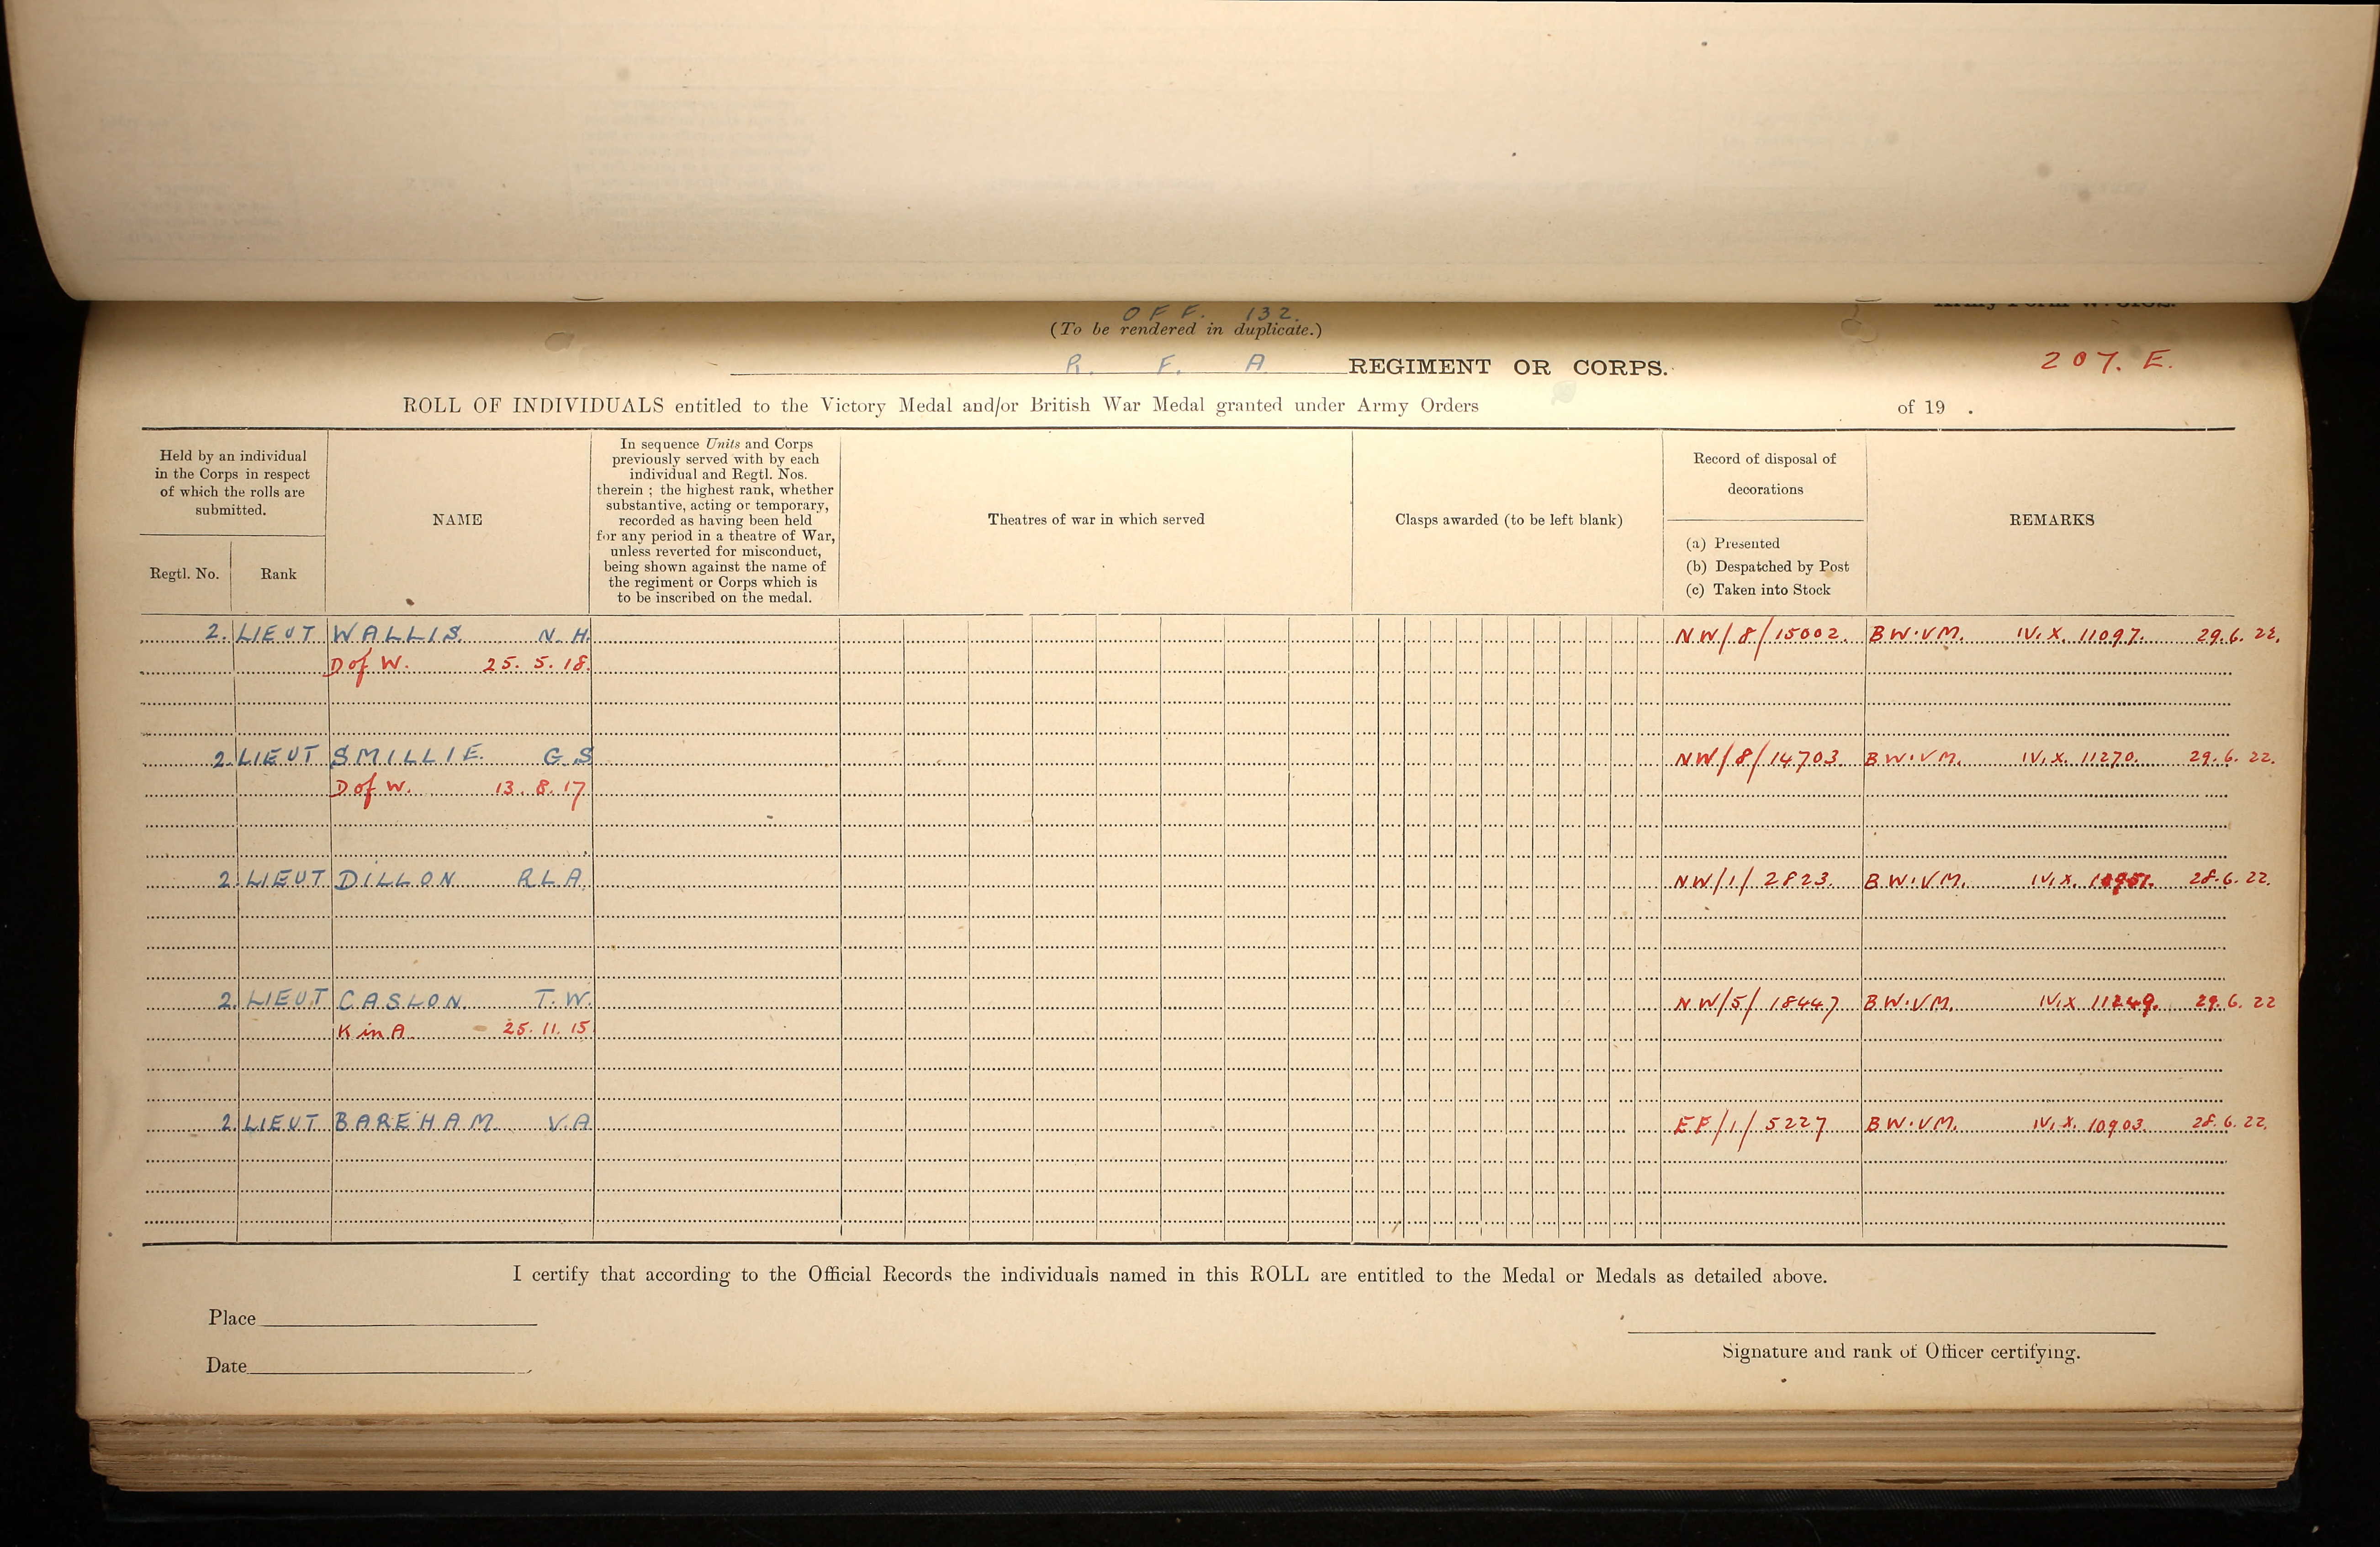 OFF. 132.
(To be rendered in duplicate.)
R. F. A REGIMENT OR CORPS.
207. E.
ROLL OF INDIVIDUALS entitled to the Victory Medal and/or British War Medal granted under Army Orders of 19 .
Held by an individual
in the Corps in respect
of which the rolls are
submitted.
Regtl. No.
Rank
NAME
In sequence Units and Corps
previously served with by each
individual and Regtl. Nos.
therein ; the highest rank, whether
substantive, acting or temporary,
recorded as having been held
for any period in a theatre of War,
unless reverted for misconduct,
being shown against the name of
the regiment or Corps which is
to be inscribed on the medal.
Theatres of war in which served
Clasps awarded (to be left blank)
Record of disposal of
decorations
(a) Presented
(b) Despatched by Post
(c) Taken into Stock
REMARKS
2. LIEUT WALLIS. N. H. NW/8/15002. BW·VM. IV.X. 11097. 29.6.22.
D of W. 25. 5. 18.
2. LIEUT SMILLIE. G.S NW/8/14703 BW·VM. IV.X. 11270. 29.6.22.
D of W. 13. 8. 17
2. LIEUT DILLON R L A. NW/1/2823. BW·VM. IV.X. 28.6.22.
2. LIEUT CASLON. T. W. NW/5/18447 BW·VM. IV.X 11249. 29.6.22
K in A 25. 11. 15
2. LIEUT BAREHAM V.A EF/1/5227 BW·VM. IV.X. 10903. 28.6.22.
I certify that according to the Official Records the individuals named in this ROLL are entitled to the Medal or Medals as detailed above.
Place
Date
Signature and rank of Officer certifying.